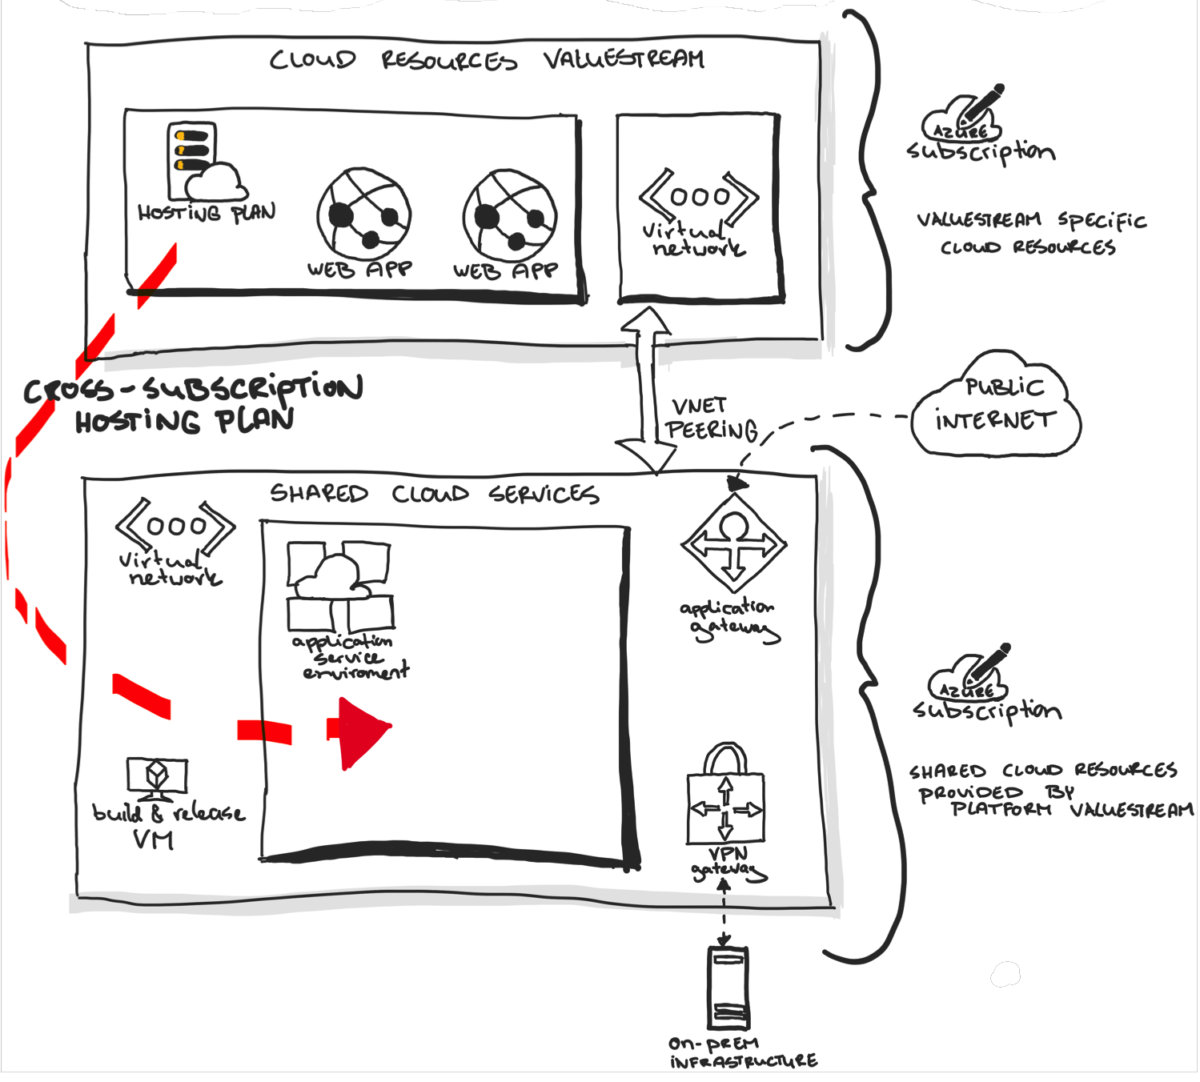 CLOUD RESOURCES VALUESTREAM
HOSTING PLAN
WEB APP
WEB APP
Virtual
network
AZURE
subscription
VALUESTREAM SPECIFIC
CLOUD RESOURCES
CROSS-SUBSCRIPTION
HOSTING PLAN
VNET
PEERING
PUBLIC
INTERNET
SHARED CLOUD SERVICES
Virtual
network
application
service
enviroment
application
gateway
build & release
VM
VPN
gateway
AZURE
subscription
SHARED CLOUD RESOURCES
PROVIDED BY
PLATFORM VALUESTREAM
on-PREM
INFRASTRUCTURE